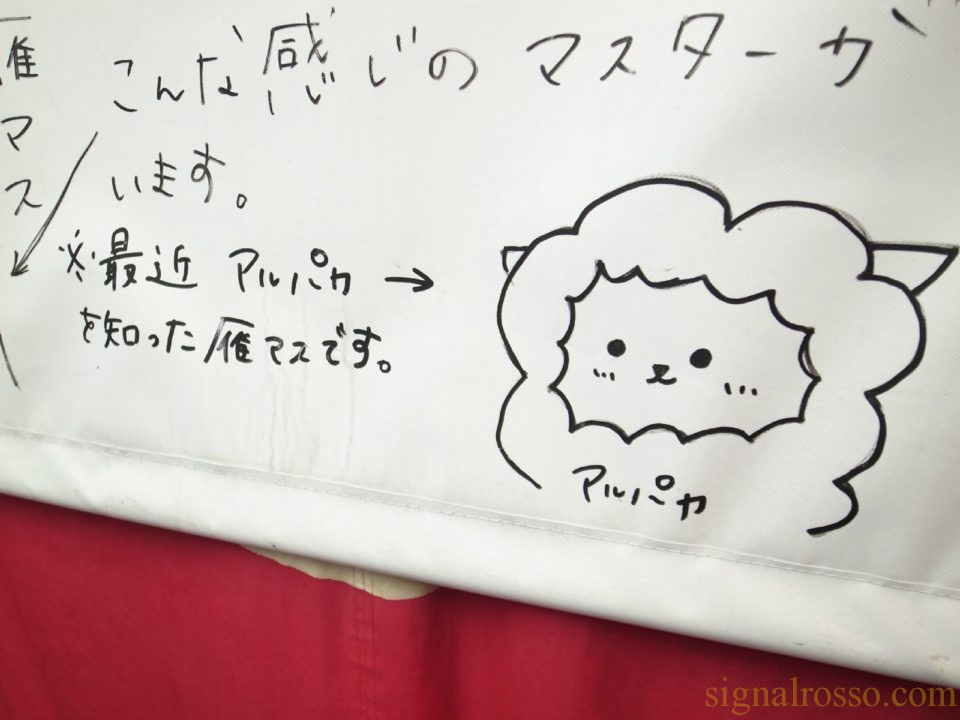 こんな感じのマスターが
います。
※最近 アルパカ →
を知った雁マスです。
アルパカ
雁マス
signalrosso.com